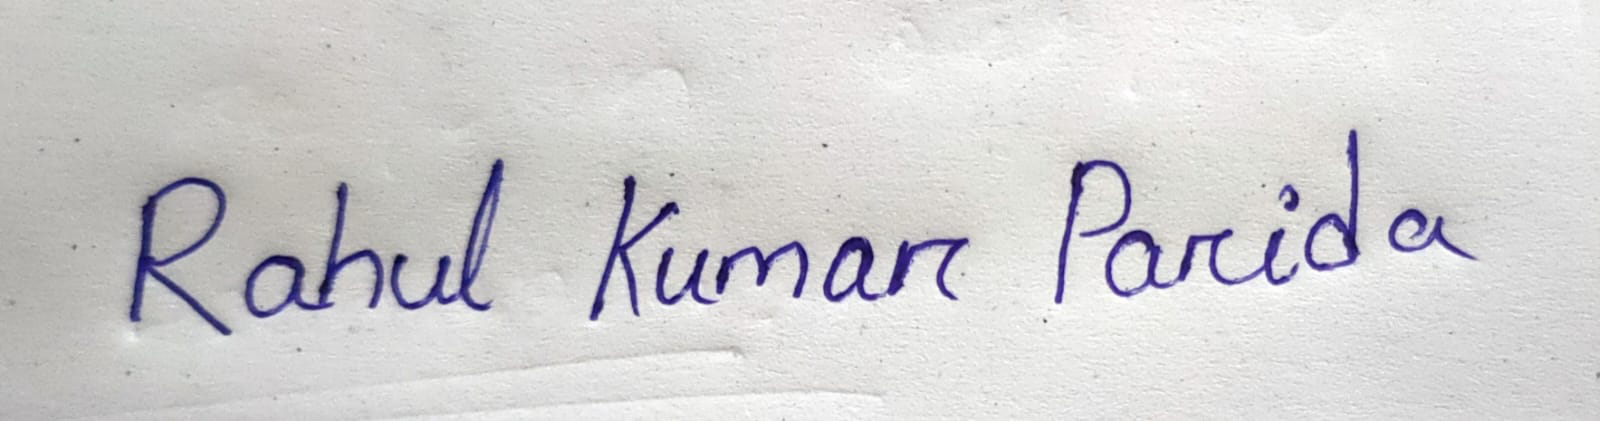 Rahul Kumar Parida